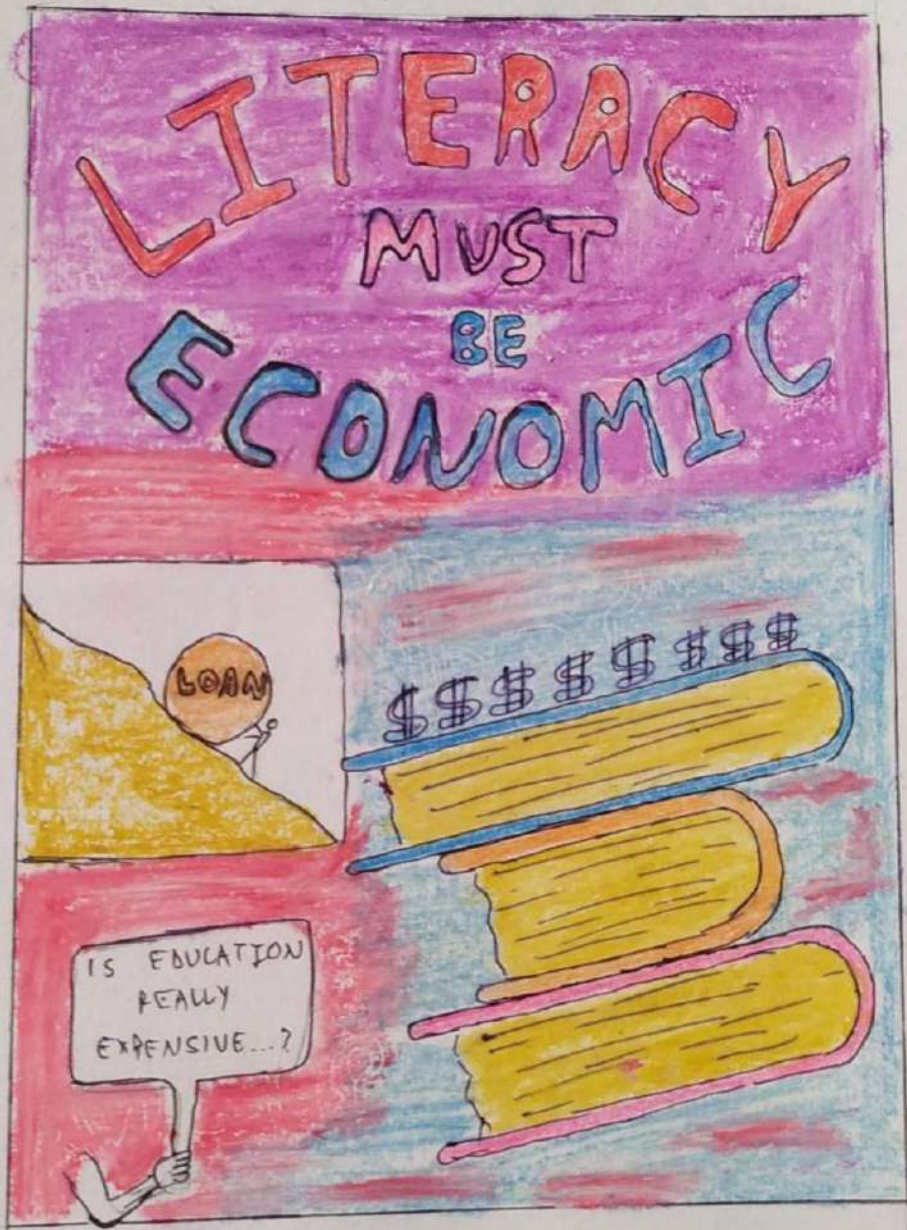 LITERACY
MUST
BE
ECONOMIC
LOAN
$$$$$$$$
IS EDUCATION
REALLY
EXPENSIVE...?